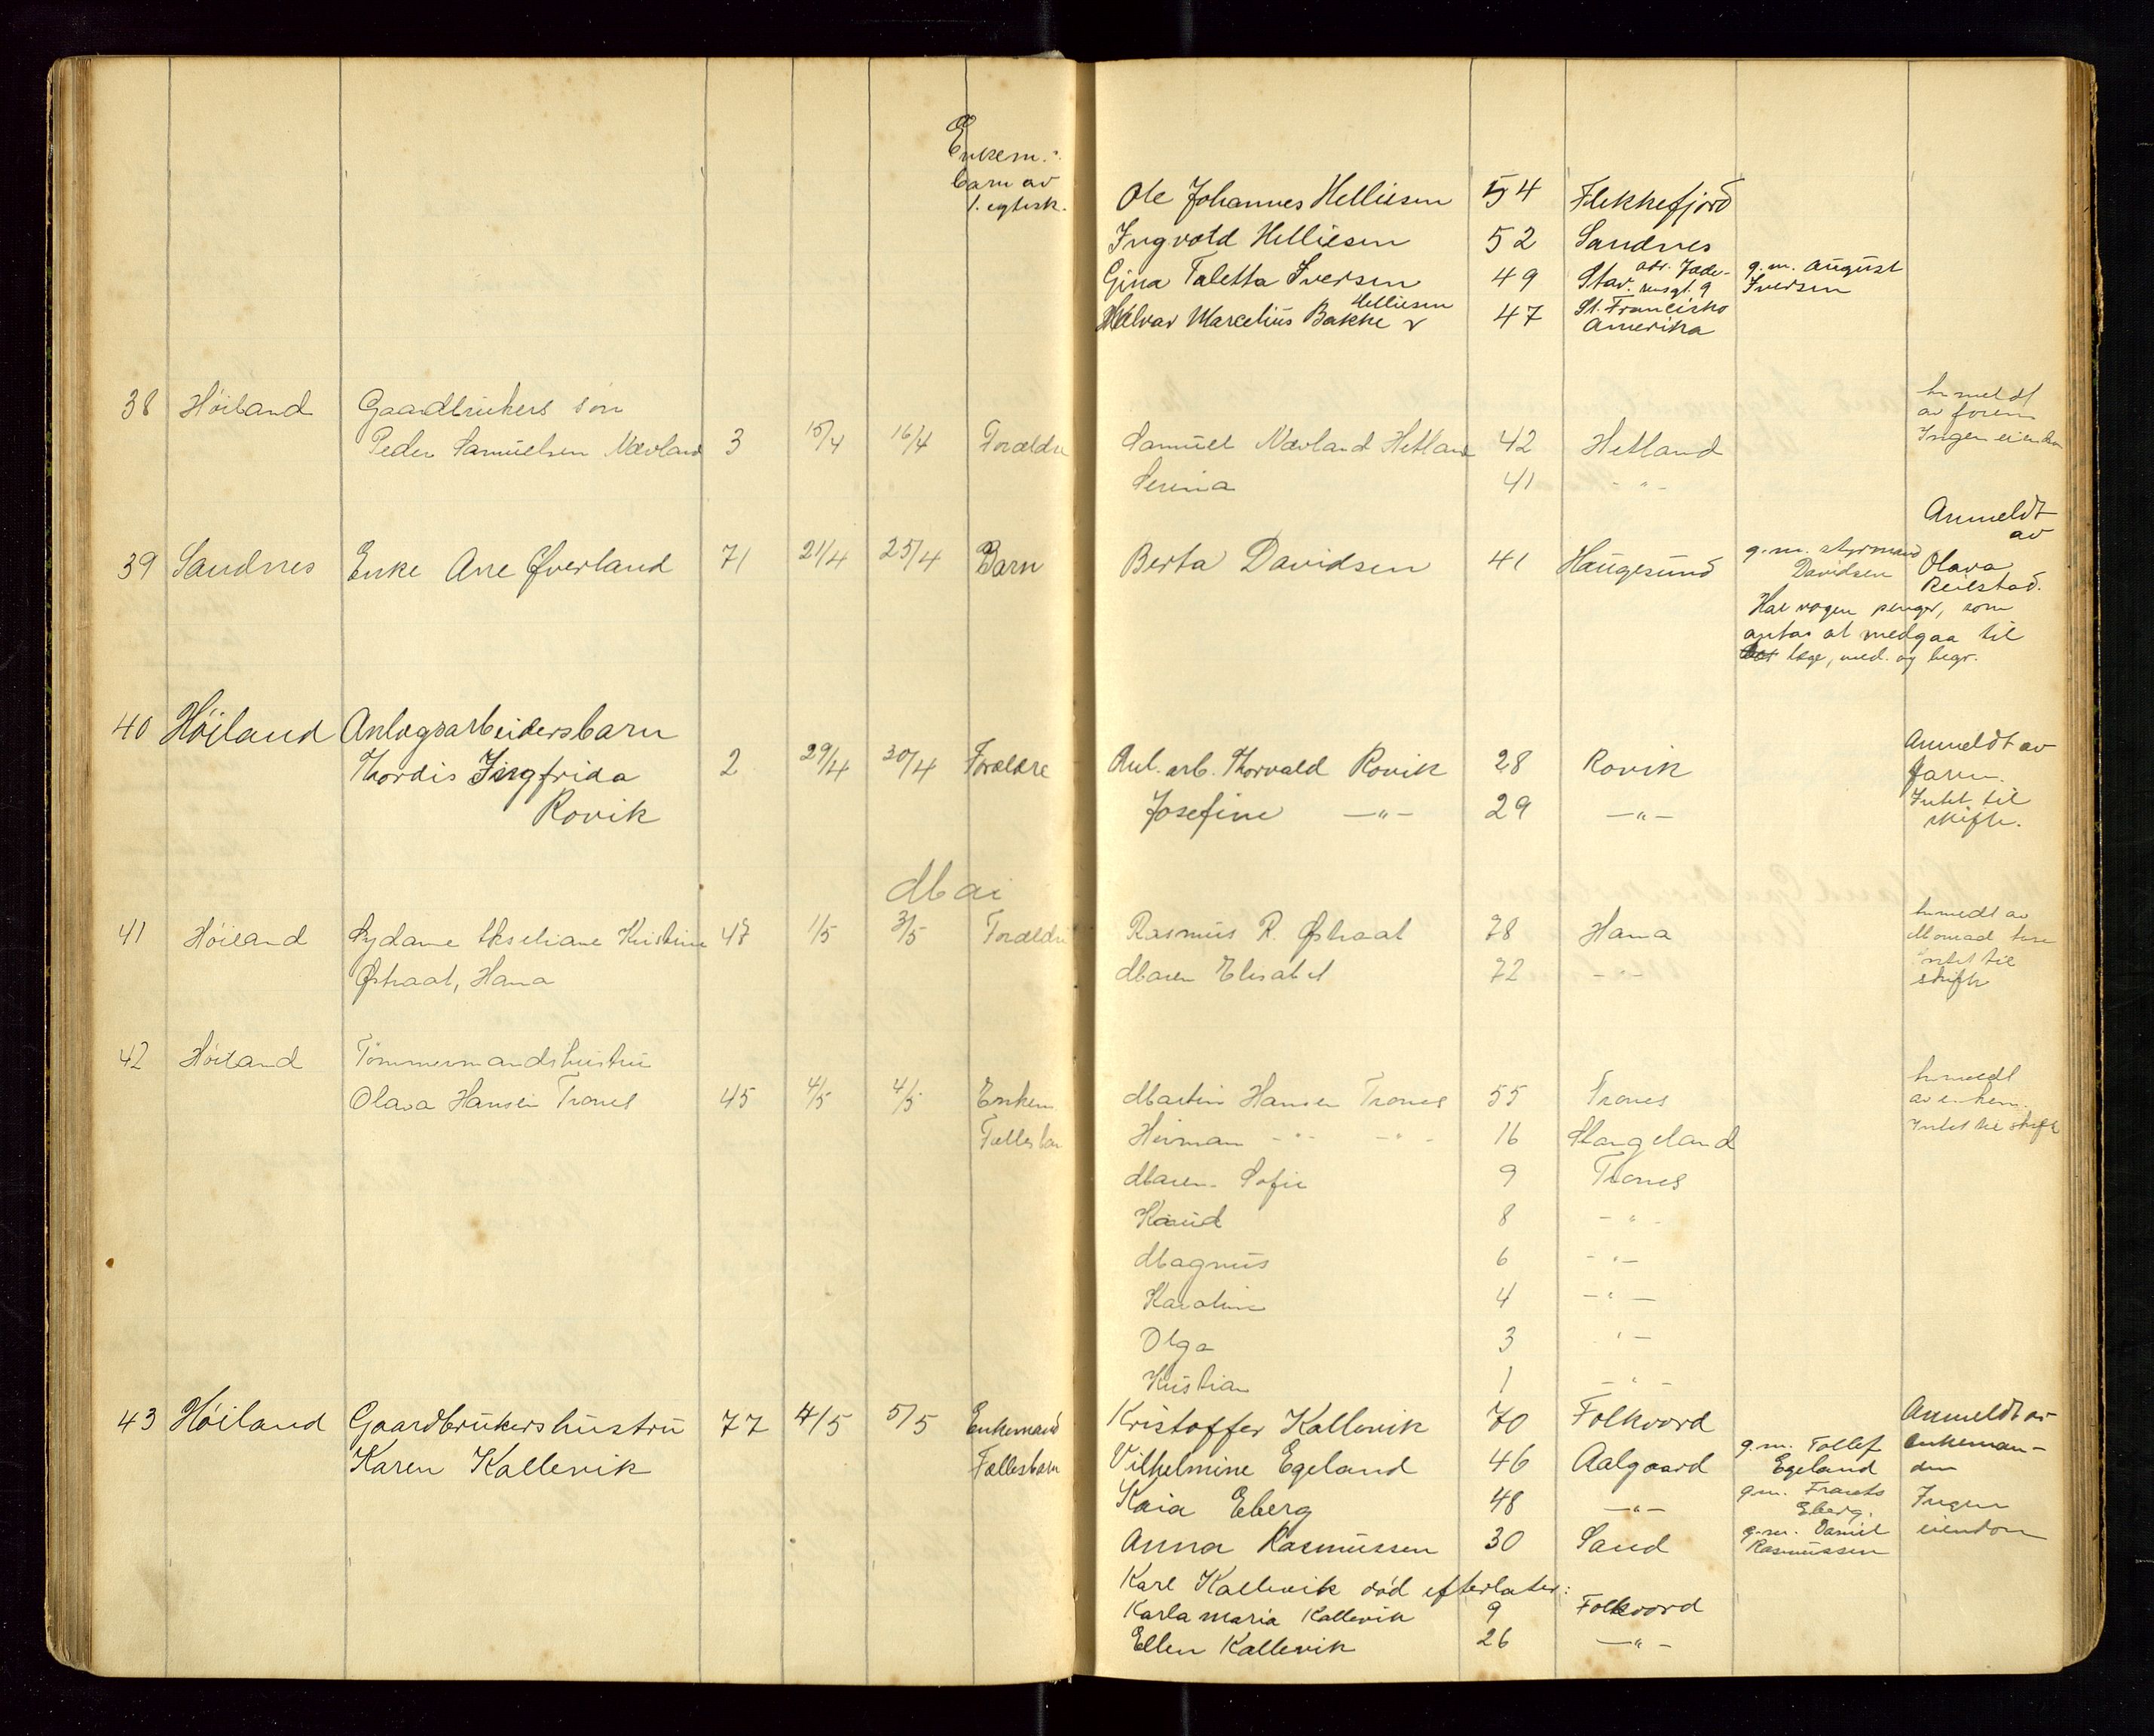 Enkem.:
barn av
1. egtesk.
Ole Johannes Helliesen 54 Flekkefjord
Ingvald Helliesen 52 Sandnes
Gina Taletta Iversen 49 Stav. adr. Jæde- g.m. August
Iversen
Helliesen
Marcelius Bakke 47 St. Francisko
Amerika
38 Höiland Gaardbrukers sön
av faren
Peder Samuelsen Nævland 3 15/4 16/4 Forældre Samuel Nævland Hetland 42 Hetland Ingen eiendom
Serina 41 - " -
Anmeldt
av
39 Sandnes Enke Ane Øverland 71 21/4 25/4 Barn Berta Davidsen 41 Haugesund g.m. styrmand
Davidsen Olava
Reilstad.
Har nogen penger, som
antas at medgaa til
læge, med. og begr.
40 Höiland Anlægsarbeidersbarn
Anmeldt av
Thordis Ingfrida 2 29/4 30/4 Forældre Anl. arb. Thorvald Rovik 28 Rovik faren.
Rovik Josefine - " - 29 - " - Intet til
skifte.
Mai
41 Höiland Kristine 47 1/5 3/5 Forældre Rasmus R. Østraat 78 Hana
Østraat, Hana Maren Elisabet 72 - " - intet til
skifte
42 Höiland Tömmermandshustru
Olava Hansen Trones 45 4/5 4/5 Enkem Martin Hansen Trones 55 Trones av enkem.
Fællesbarn Herman - " - - " - 16 Stangeland Intet til skifte
Maren Sofie 9 Trones
Knud 8 - " -
Magnus 6 - " -
Karoline 4 - " -
Olga 3 " -
Kristian 1 - " -
43 Höiland Gaardbrukershustru 77 4/5 5/5 Enkemand Kristoffer Kallevik 70 Folkvord Anmeldt av
Karen Kallevik Fællesbarn Vilhelmine Egeland 46 Aalgaard g.m. Tollef Egeland enkeman-
den
Kaia Eberg 48 - " - g.m. Frants Eberg. Ingen
Anna Rasmussen 30 Sand g.m. Daniel Rasmussen eiendom
Karl Kallevik död efterlater:
Karla Maria Kallevik 9 Folkvord
Ellen Kallevik 26 - " -